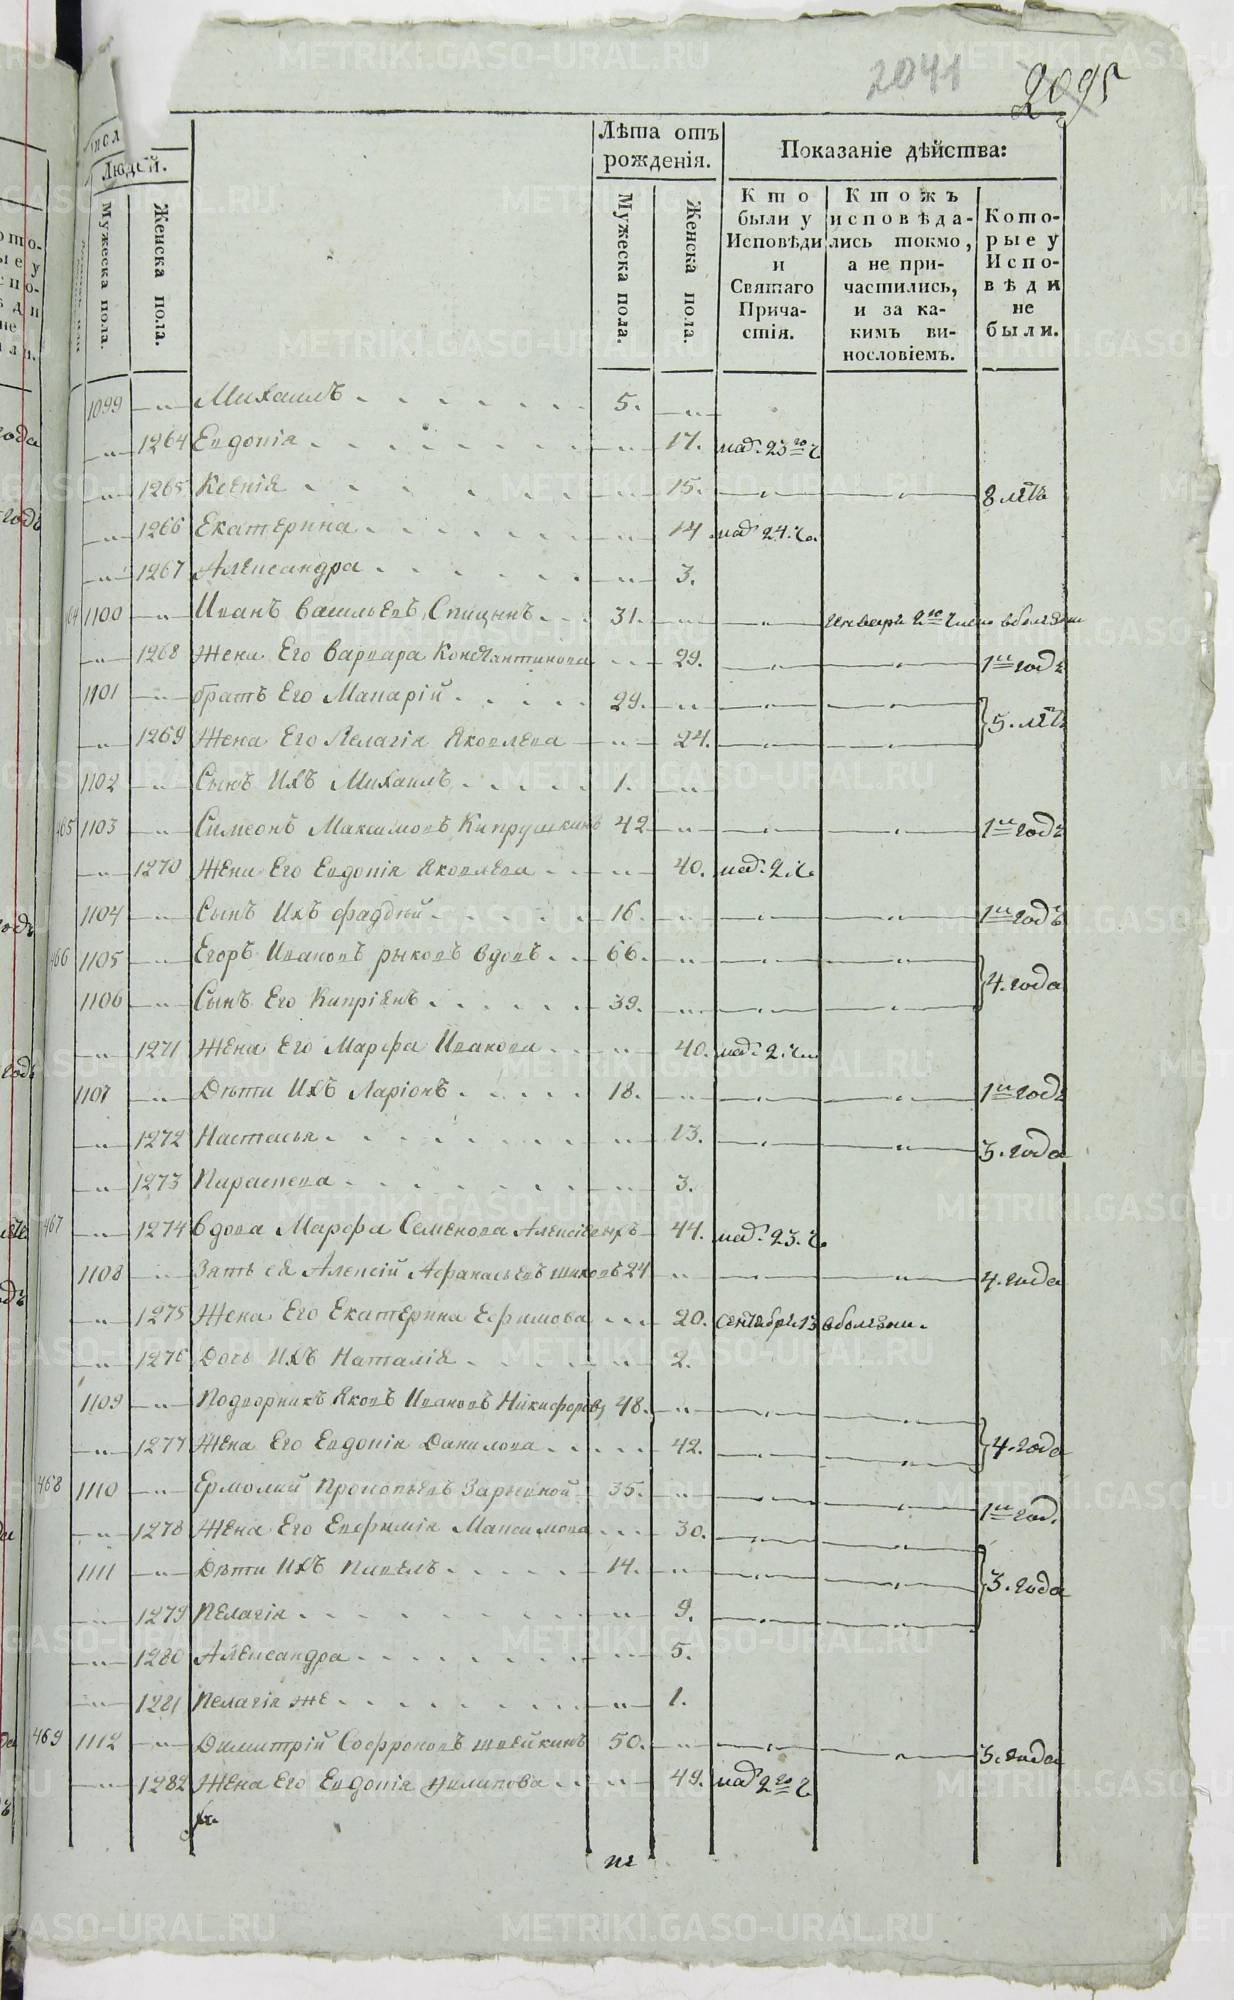 2041
2095
Людей.
Мужеска пола.
Женска пола.
Лѣта отъ рожденія.
Мужеска пола.
Женска пола.
Показаніе дѣйства:
Кто были у Исповѣди и Святаго Причастія.
Ктожъ исповѣдались токмо, а не причастились, и за какимъ винословіемъ.
Которые у Исповѣди не были.
1099 Михаилъ 5.
1264 Евдокія 17. 23го ч
1265 Ксенія 15. 8 лѣтъ
1266 Екатерина 14 24. ч.
1267 Александра 3.
1100 Иванъ Васильевъ Спицынъ 31. 2го числа в болезни
1268 Жена Его Варвара Константинова 29. 1й годъ
1101 братъ Его Макарій 29.
1269 Жена Его Пелагія Яковлева 24. 5. лѣтъ
1102 Сынъ Ихъ Михаилъ 1.
465 1103 Симеонъ Максимовъ 42 1й годъ
1270 Жена Его Евдокія Яковлева 40. 2. ч.
1104 Сынъ Ихъ Фаддѣй 16. 1й годъ
466 1105 Егоръ Ивановъ рыковъ вдовъ 66.
1106 Сынъ Его Кипріянъ 39. 4. года
1271 Жена Его Марфа Иванова 40. 2. ч.
1107 Дѣти Ихъ Ларіонъ 18. 1й годъ
1272 Настасья 13. 3. года
1273 Параскева 3.
467 1274 вдова Марфа Семенова 44. 23. ч.
1108 Зять ея Алексій Афанасьевъ 24 4. года
1275 Жена Его Екатерина Ефимова 20. Сентябрь 13 в болезни.
1276 Дочь Ихъ Наталія 2.
1109 Подворникъ Яковъ Ивановъ Никифоровъ 48.
1277 Жена Его Евдокія Данилова 42. 4. года
468 1110 Ермолай Прокопьевъ 35. 1й год.
1278 Жена Его Евфимія Максимова 30.
1111 Дѣти Ихъ Павелъ 14. 3. года
1279 Пелагія 9.
1280 Александра 5.
1281 Пелагія же 1.
469 1112 Димитрій Софроновъ швейкинъ 50. 3. года
1282 Жена Его Евдокія Филипова 49. 2го ч
METRIKI.GASO-URAL.RU